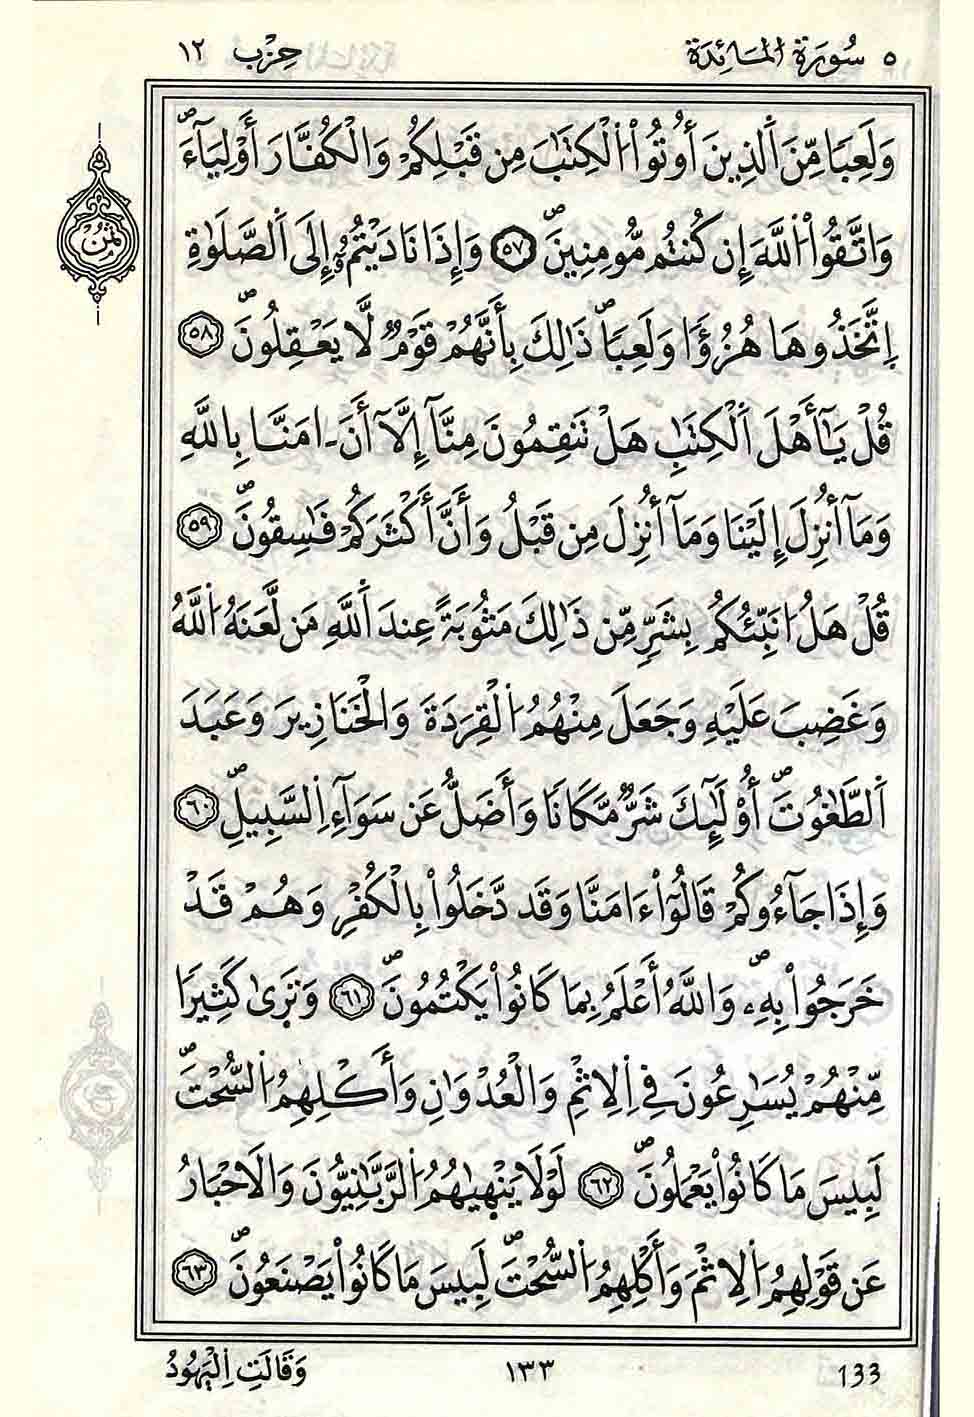 ٥ سُورَةُ المَائِدَة حِزْب ١٢
وَلَعِبٗا مِّنَ اَ۬لذِينَ أُوتُواْ اُ۬لْكِتَٰبَ مِن قَبْلِكُمْ وَالْكُفَّارَ أَوْلِيَآءَۖ
وَاتَّقُواْ اُ۬للَّهَ إِن كُنتُم مُّومِنِينَۖ ٥٧ وَإِذَا نَادَيْتُمُۥٓ إِلَى اَ۬لصَّلَوٰةِ
ثمن
اِ۪تَّخَذُوهَا هُزُؤٗا وَلَعِبٗاۖ ذَٰلِكَ بِأَنَّهُمْ قَوْمٞ لَّا يَعْقِلُونَۖ ٥٨
قُلْ يَٰٓأَهْلَ اَ۬لْكِتَٰبِ هَلْ تَنقِمُونَ مِنَّآ إِلَّآ أَنَ اٰمَنَّا بِاللَّهِ
وَمَآ أُنزِلَ إِلَيْنَا وَمَآ أُنزِلَ مِن قَبْلُ وَأَنَّ أَكْثَرَكُمْ فَٰسِقُونَۖ ٥٩
قُلْ هَلُ ا۟نَبِّئُكُم بِشَرّٖ مِّن ذَٰلِكَ مَثُوبَةً عِندَ اَ۬للَّهِ مَن لَّعَنَهُ اُ۬للَّهُ
وَغَضِبَ عَلَيْهِ وَجَعَلَ مِنْهُمُ اُ۬لْقِرَدَةَ وَالْخَنَازِيرَ وَعَبَدَ
اَ۬لطَّٰغُوتَۖ أُوْلَٰٓئِكَ شَرّٞ مَّكَانٗا وَأَضَلُّ عَن سَوَآءِ اِ۬لسَّبِيلِۖ ٦٠
وَإِذَا جَآءُوكُمْ قَالُوٓاْ ءَامَنَّا وَقَد دَّخَلُواْ بِالْكُفْرِ وَهُمْ قَدْ
خَرَجُواْ بِهِۦۖ وَاللَّهُ أَعْلَمُ بِمَا كَانُواْ يَكْتُمُونَۖ ٦١ وَتَر۪يٰ كَثِيرٗا
مِّنْهُمْ يُسَٰرِعُونَ فِي اِ۬لِاثْمِ وَالْعُدْوَٰنِ وَأَكْلِهِمُ اُ۬لسُّحْتَۖ
لَبِيسَ مَا كَانُواْ يَعْمَلُونَۖ ٦٢ لَوْلَا يَنْه۪يٰهُمُ اُ۬لرَّبَّٰنِيُّونَ وَالَاحْبَارُ
عَن قَوْلِهِمُ اُ۬لِاثْمَ وَأَكْلِهِمُ اُ۬لسُّحْتَۖ لَبِيسَ مَا كَانُواْ يَصْنَعُونَۖ ٦٣
133 ١٣٣ وَقَالَتِ اِ۬لْيَهُودُ